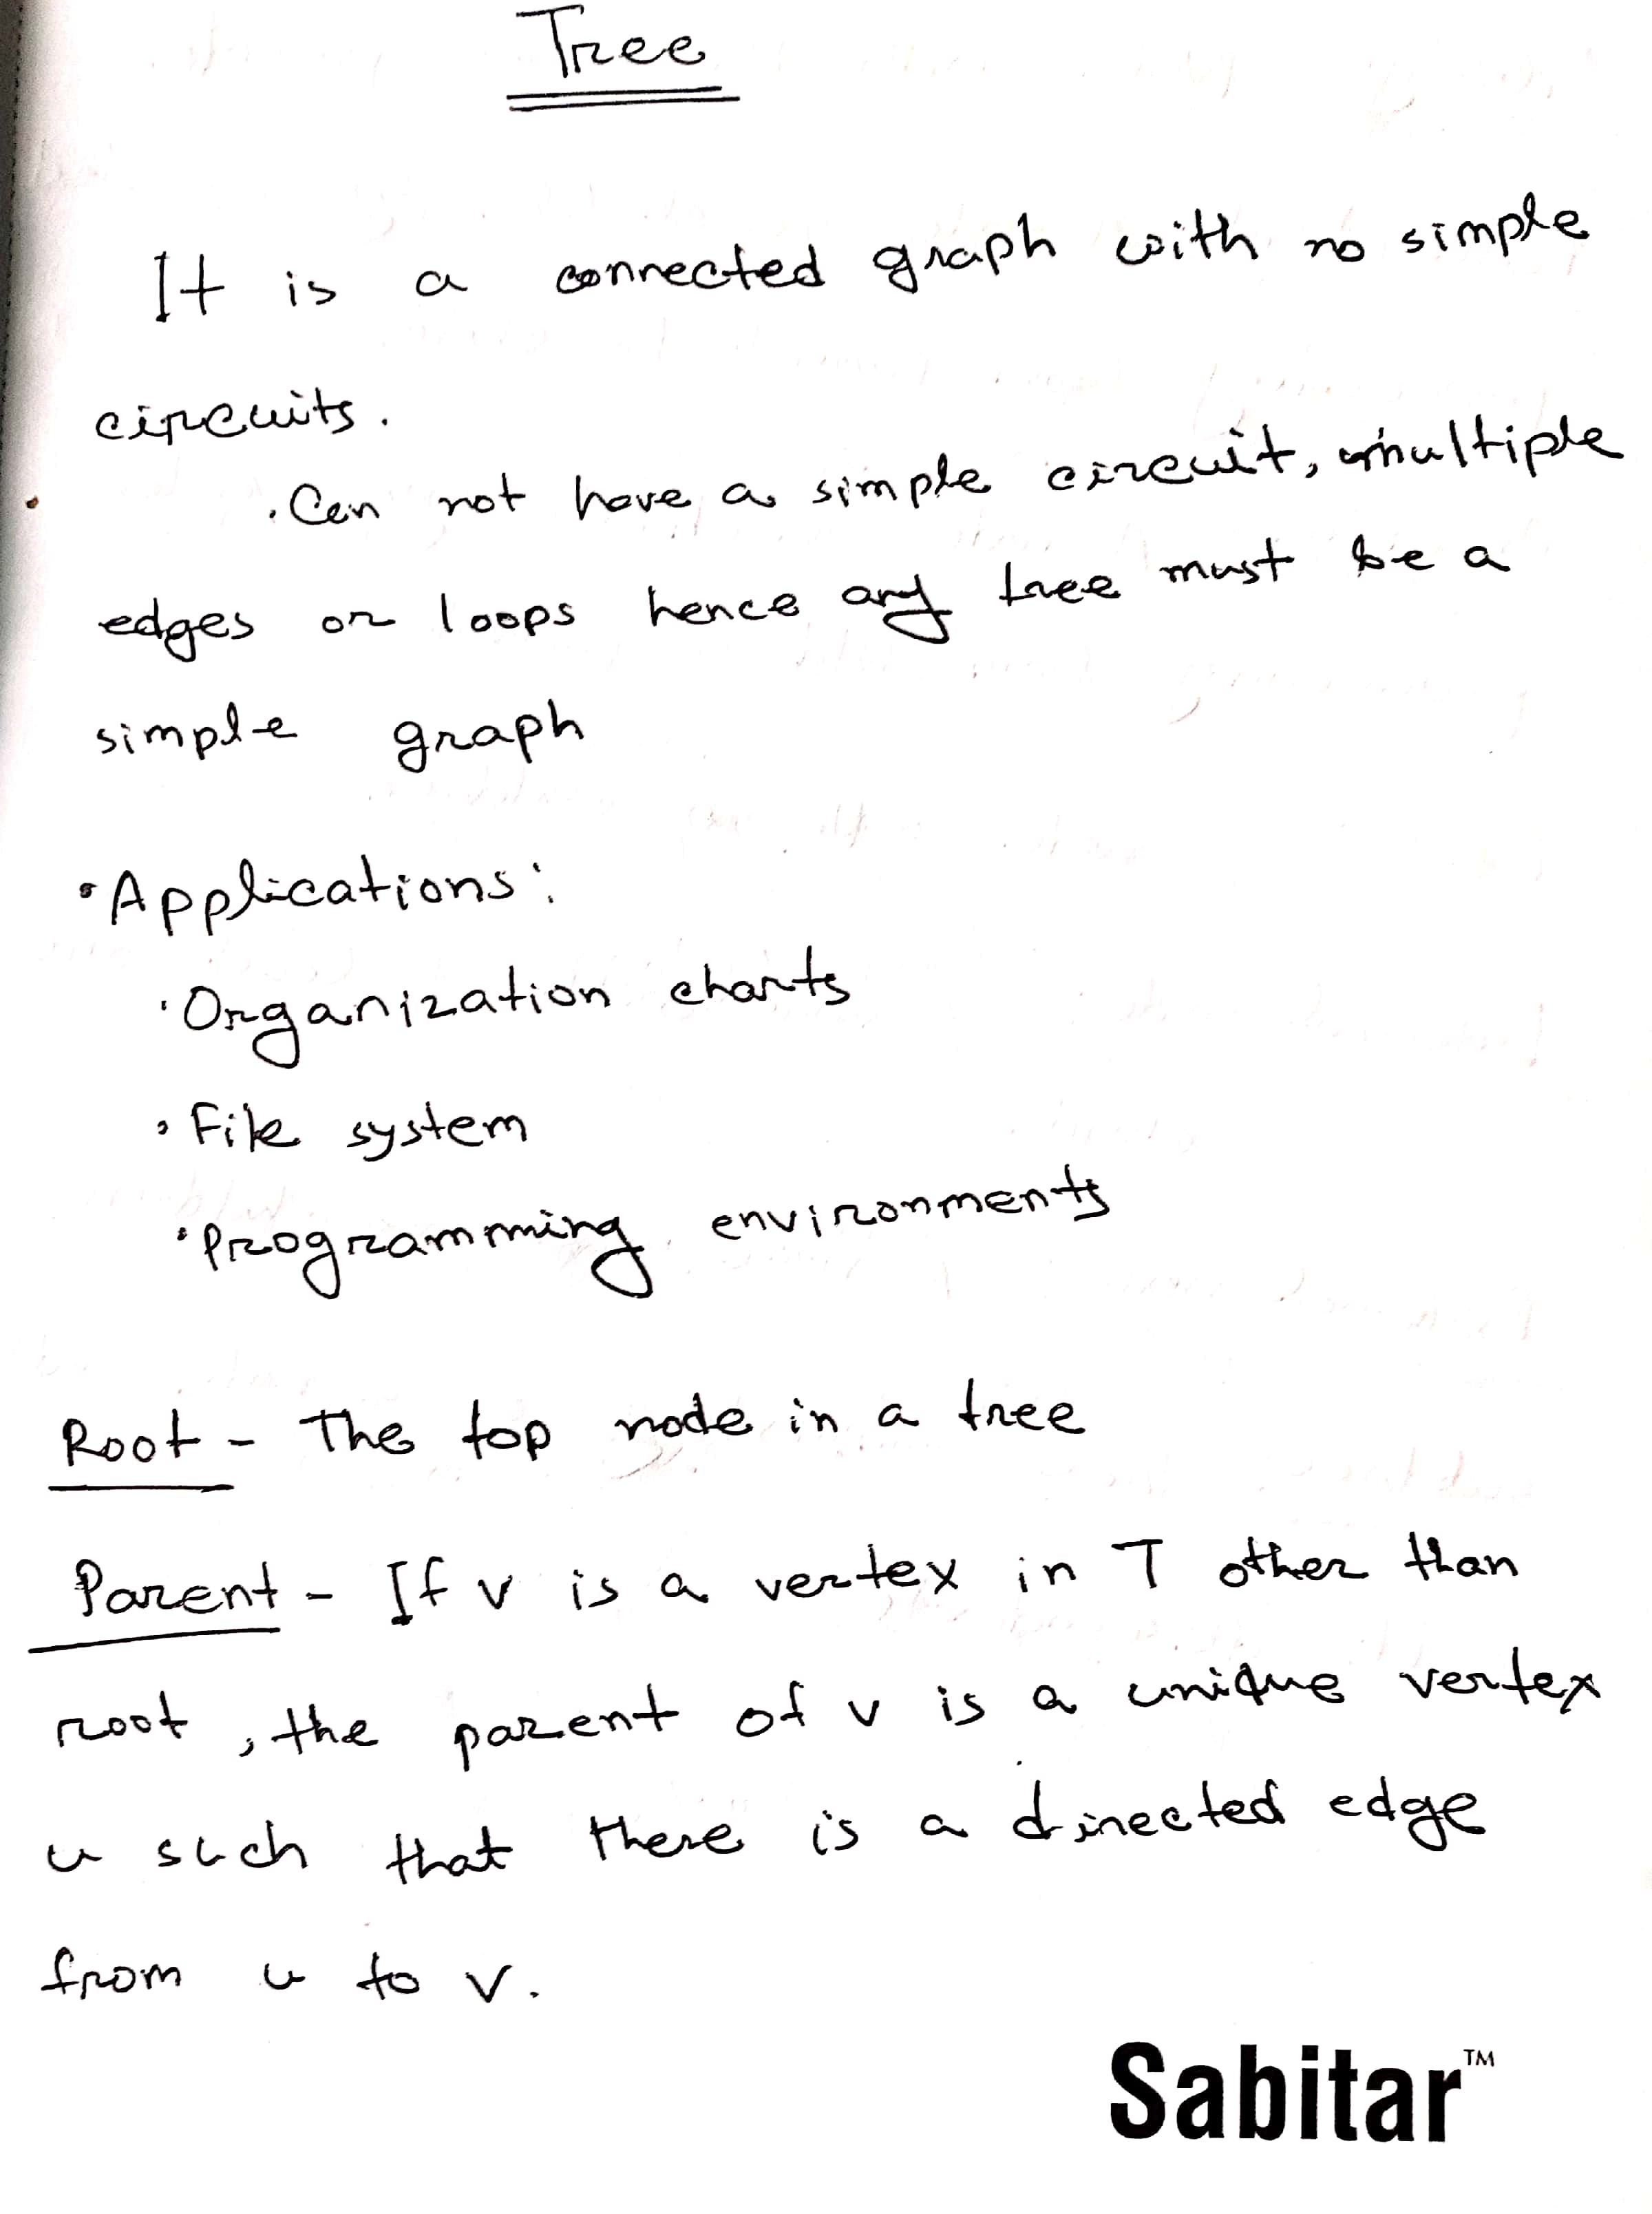 Tree
It is a connected graph with no simple
circuits.
. Can not have a simple circuit, multiple
edges or loops hence any tree must be a
simple graph
• Applications:
• Organization charts
• File system
• Programming environments
Root - The top node in a tree
Parent - If v is a vertex in T other than
root, the parent of v is a unique vertex
u such that there is a directed edge
from u to v.
Sabitar™